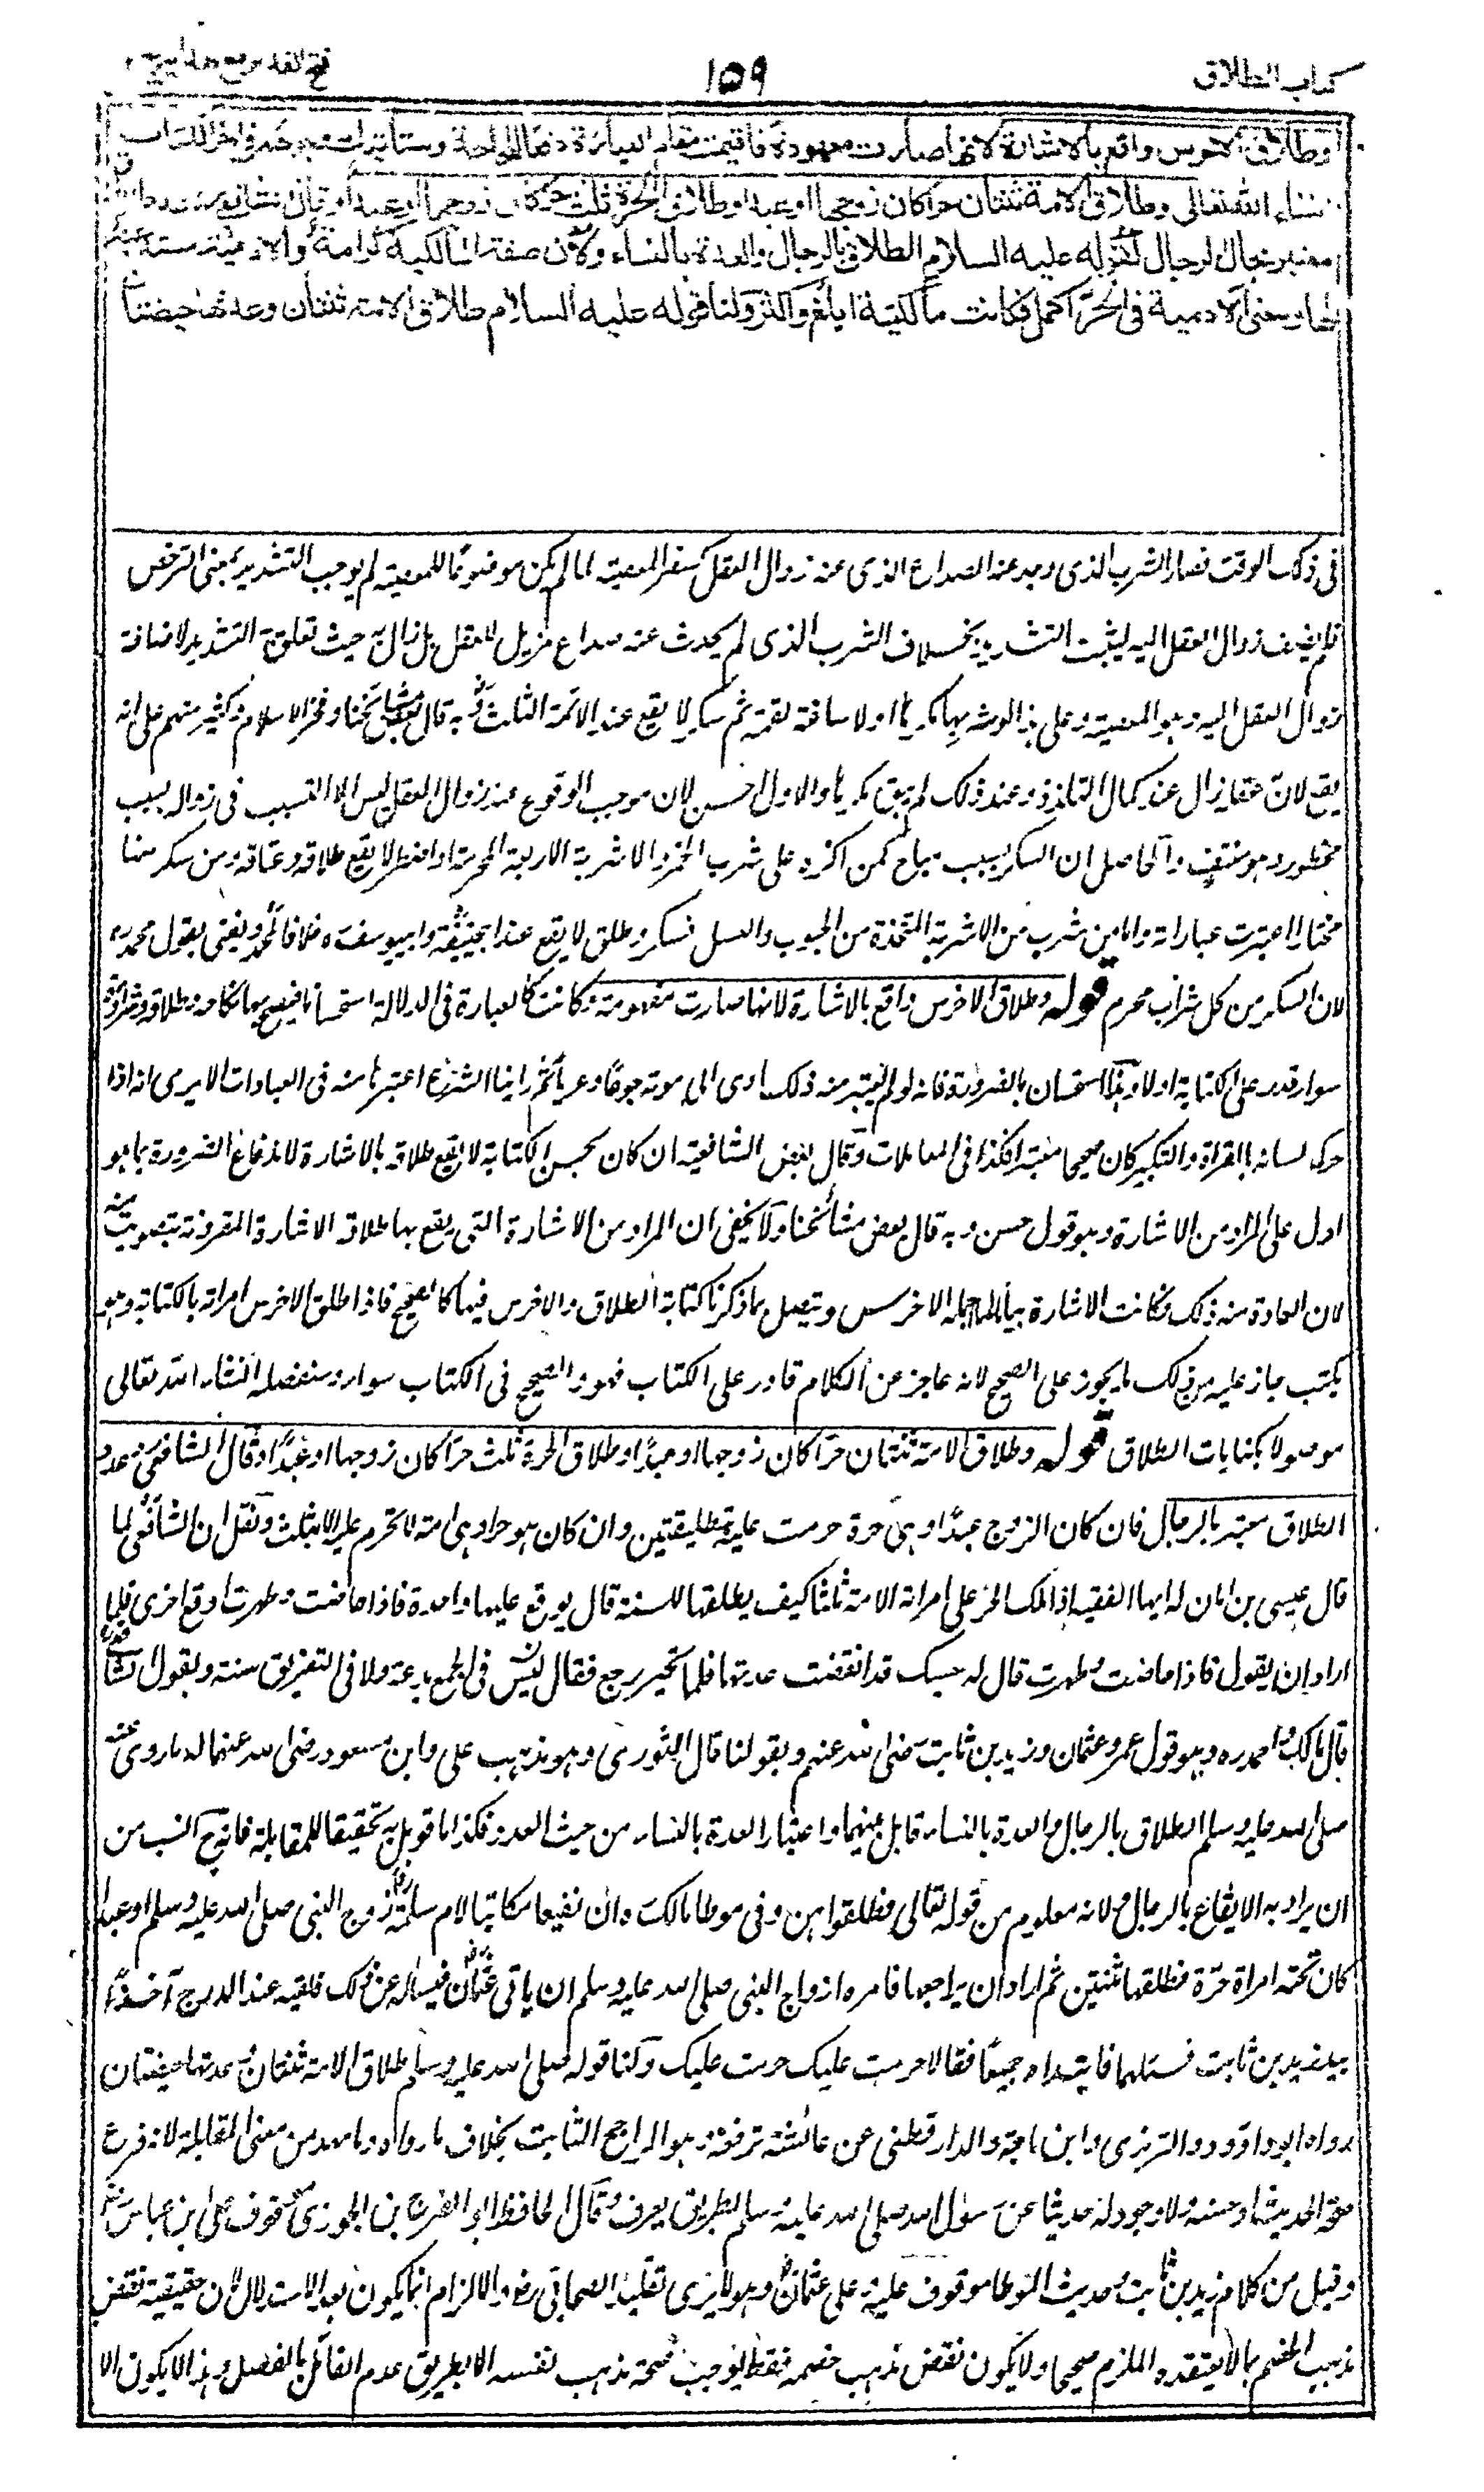 كتاب الطلاق
١٥٩
فتح القدير مع هداية
وطلاق الاخرس واقع بالاشارة لانها صارت معهودة فاقيمت مقام العبارة دفعا للحاجة وستأتيك وجوهه في اخر الكتاب
ان شاء الله تعالى وطلاق الامة ثنتان حرا كان زوجها او عبدا وطلاق الحرة ثلث حرا كان زوجها او عبدا وقال الشافعي عدد الطلاق
معتبر بحال الرجال لقوله عليه السلام الطلاق بالرجال والعدة بالنساء ولان صفة المالكية كرامة والادمية مستدعية
لها ومعنى الادمية في الحر اكمل فكانت مالكيته ابلغ واكثر ولنا قوله عليه السلام طلاق الامة ثنتان وعدتها حيضتان
فى ذلك الوقت فصار الشرب الذى وجد عنه الصداع الذى عنه زوال العقل كسفر المعصية لما لم يكن موضوعا للمعصية لم يوجب التشديد بمنى الترخص
فلم يضف زوال العقل اليه ليثبت التشديد بخلاف الشرب الذى لم يحدث عنه صداع مزيل للعقل بل زال به حيث تعلق به التشديد لاضافة
زوال العقل اليه وهو المعصية وعلى هذا لو شربها مكرها او لاساغة لقمة ثم سكر لا يقع عند الائمة الثلث وبه قال بعض مشائخنا وفخر الاسلام وكثير منهم على انه
يقع لان عقله زال عند كمال التلذذ وعند ذلك لم يبق مكرها والاول احسن لان موجب الوقوع عند زوال العقل ليس الا التسبب فى زواله بسبب
محظور وهو منتف والحاصل ان السكر بسبب مباح كمن اكره على شرب الخمر والاشربة الاربعة المحرمة او اضطر لا يقع طلاقه وعتاقه ومن سكر منها
مختارا اعتبرت عباراته واما من شرب من الاشربة المتخذة من الحبوب والعسل فسكر وطلق لا يقع عند ابيحنيفة وابيوسف ره خلافا لمحمد ويفتى بقول محمد ره
لان السكر من كل شراب محرم قوله وطلاق الاخرس واقع بالاشارة لانها صارت مفهومة فكانت كالعبارة فى الدلالة استحسانا فيصح بها نكاحه وطلاقه وشراؤه
سواء قدر على الكتابة اولا وهذا استحسان بالضرورة فانه لو لم يعتبر منه ذلك ادى الى موته جوعا وعريا ثم راينا الشرع اعتبرها منه فى العبادات الا يرى انه اذا
حرك لسانه بالقراءة والتكبير كان صحيحا معتبرا فكذا فى المعاملات وقال بعض الشافعية ان كان يحسن الكتابة لا يقع طلاقه بالاشارة لاندفاع الضرورة بما هو
ادل على المراد من الاشارة وهو قول حسن وبه قال بعض مشائخنا ولا يخفى ان المراد من الاشارة التى يقع بها طلاقه الاشارة المقرونة بتصويت منه
لان العادة منه ذلك فكانت الاشارة بيانا لما اجمله الاخرس ويتصل بما ذكرنا كتابة الطلاق والاخرس فيها كالصحيح فاذا طلق الاخرس امراته بالكتابة وهو
يكتب جاز عليه من ذلك ما يجوز على الصحيح لانه عاجز عن الكلام قادر على الكتاب فهو والصحيح فى الكتاب سواء وسنفصله انشاء الله تعالى
موصولا بكنايات الطلاق قوله وطلاق الامة ثنتان حرا كان زوجها او عبدا وطلاق الحرة ثلث حرا كان زوجها او عبدا وقال الشافعي ره عدد
الطلاق معتبر بالرجال فان كان الزوج عبدا وهى حرة حرمت عليه بتطليقتين وان كان هو حرا وهى امة لا تحرم عليه الا بثلث ونقل ان الشافعى لما
قال عيسى بن ابان له ايها الفقيه اذا ملك الحر على امراته الامة ثلثا كيف يطلقها للسنة قال يوقع عليها واحدة فاذا حاضت وطهرت اوقع اخرى فلما
اراد ان يقول فاذا حاضت وطهرت قال له حسبك قد انقضت عدتها فلما تحير رجع فقال ليس فى الجمع بدعة ولا فى التفريق سنة وبقول الشافعى
قال مالك واحمد ره وهو قول عمر وعثمان وزيد بن ثابت رضى الله عنهم وبقولنا قال الثورى وهو مذهب على وابن مسعود رضى الله عنهما له ما روى عنه
صلى الله عليه وسلم الطلاق بالرجال والعدة بالنساء قابل بينهما واعتبار العدة بالنساء من حيث العدد فكذا ما قوبل به تحقيقا للمقابلة فانه ح انسب من
ان يراد به الايقاع بالرجال ولانه معلوم من قوله تعالى فطلقوهن وفى موطا مالك ره ان نفيعا مكاتبا لام سلمة زوج النبى صلى الله عليه وسلم او عبدا
كان تحته امراة حرة فطلقها ثنتين ثم اراد ان يراجعها فامره ازواج النبى صلى الله عليه وسلم ان ياتى عثمان فيساله عن ذلك فلقيه عند الدرج آخذا
بيد زيد بن ثابت فسئلهما فابتدراه جميعا فقالا حرمت عليك حرمت عليك ولنا قوله صلى الله عليه وسلم طلاق الامة ثنتان وعدتها حيضتان
رواه ابوداؤد والترمذى وابن ماجة والدارقطنى عن عائشة ترفعه وهو الراجح الثابت بخلاف ما رواه وما مهد من معنى المقابلة لانه فرع
صحة الحديث او حسنه ولا وجود له حديثا عن رسول الله صلى الله عليه وسلم بطريق يعرف وقال الحافظ ابو الفرج بن الجوزى موقوف على ابن عباس
وقيل من كلام زيد بن ثابت وحديث الموطا موقوف عليه على عثمان وهو لا يرى تقليد الصحابى رض والالزام انما يكون بعد الاستدلال لان حقيقته نقض
مذهب الخصم بما لا يعتقده الملزم صحيحا ولا يكون نقض مذهب خصمه فقط يوجب صحة مذهب نفسه الا بطريق عدم القائل بالفصل وهذا لا يكون الا